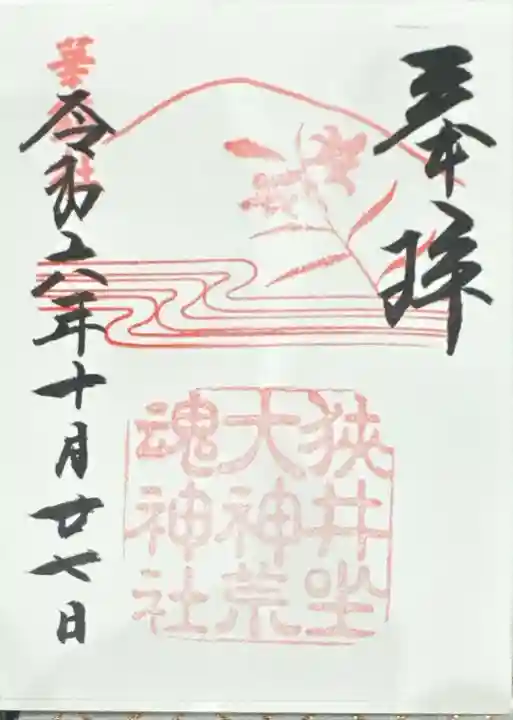 奉拝
狭井坐
大神荒
魂神社
令和六年十月廿七日